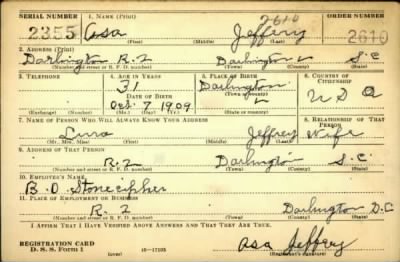 SERIAL NUMBER 1. NAME (Print) ORDER NUMBER
2610
2355 Asa Jeffery 2610
(First) (Middle) (Last)
2. ADDRESS (Print)
Darlington R.2 Darlington S.C
(Number and street or R. F. D. number) (Town) (County) (State)
3. TELEPHONE 4. AGE IN YEARS 5. PLACE OF BIRTH 6. COUNTRY OF CITIZENSHIP
31 Darlington
DATE OF BIRTH (Town or county)
Oct 7 1909 U S A
(Exchange) (Number) (Mo.) (Day) (Yr.) (State or country)
7. NAME OF PERSON WHO WILL ALWAYS KNOW YOUR ADDRESS 8. RELATIONSHIP OF THAT PERSON
Jeffrey Wife
(Mr., Mrs., Miss) (First) (Middle) (Last)
9. ADDRESS OF THAT PERSON
R.2 Darlington S.C.
(Number and street or R. F. D. number) (Town) (County) (State)
10. EMPLOYER'S NAME
B.D. Stonecipher
11. PLACE OF EMPLOYMENT OR BUSINESS
R. 2 Darlington
(Number and street or R. F. D. number) (Town) (County) (State)
I AFFIRM THAT I HAVE VERIFIED ABOVE ANSWERS AND THAT THEY ARE TRUE.
REGISTRATION CARD
D. S. S. Form 1 (over) 16—17105 Asa Jeffery